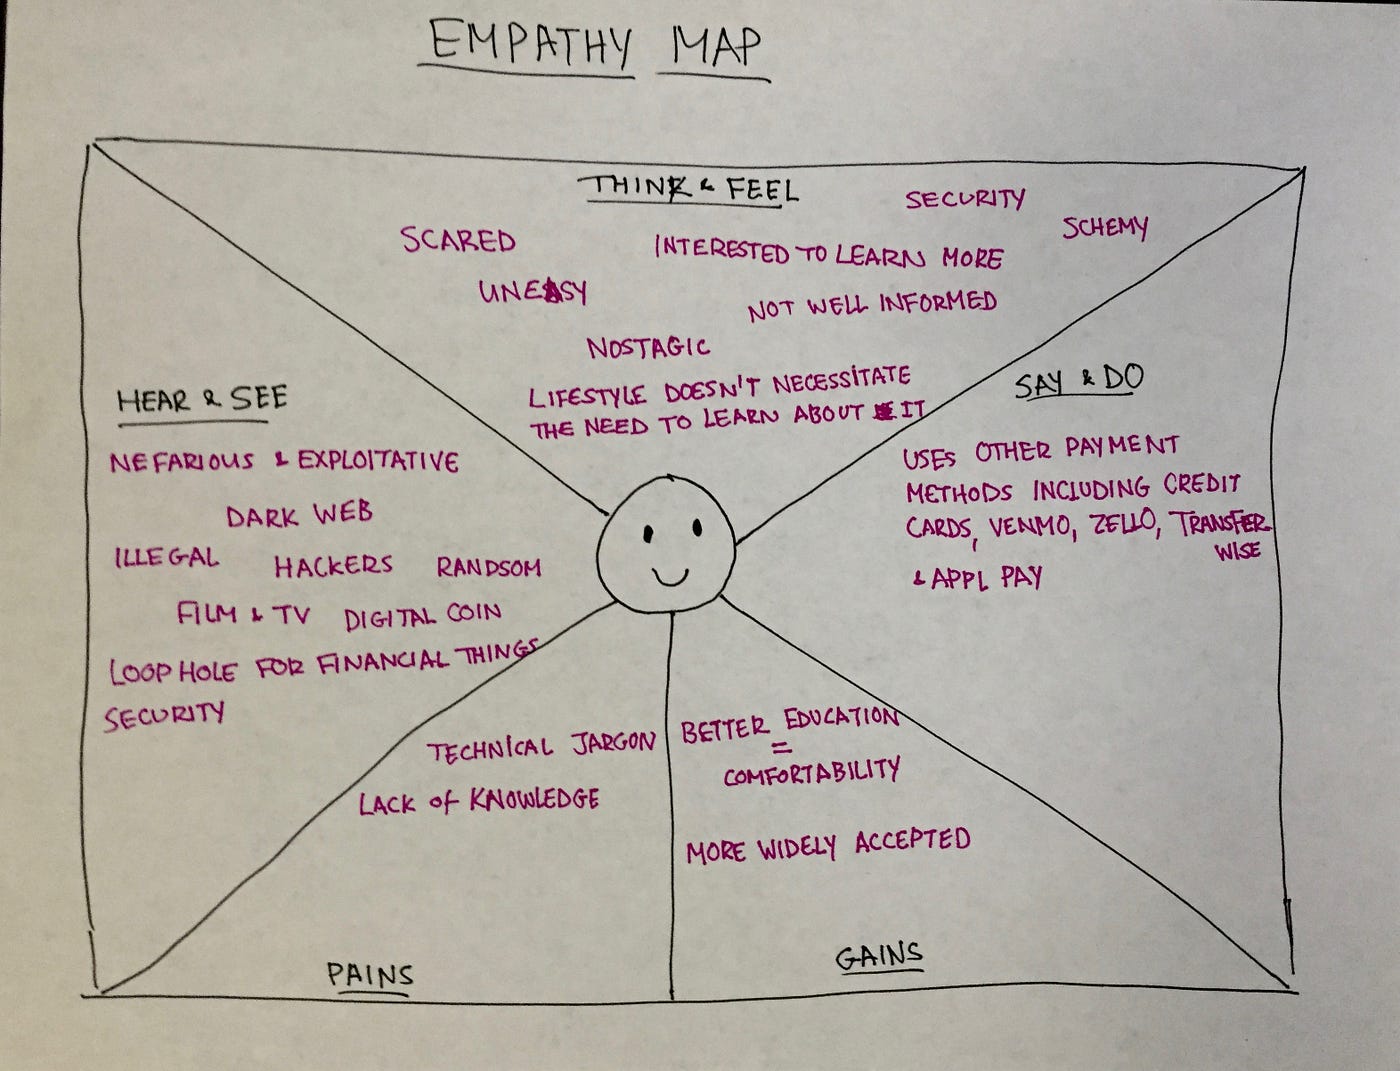 EMPATHY MAP
THINK & FEEL
SECURITY
SCHEMY
SCARED
INTERESTED TO LEARN MORE
UNEASY
NOT WELL INFORMED
NOSTAGIC
LIFESTYLE DOESN'T NECESSITATE
THE NEED TO LEARN ABOUT IT
HEAR & SEE
NEFARIOUS & EXPLOITATIVE
DARK WEB
ILLEGAL HACKERS RANDSOM
FILM & TV DIGITAL COIN
LOOP HOLE FOR FINANCIAL THINGS
SECURITY
SAY & DO
USES OTHER PAYMENT
METHODS INCLUDING CREDIT
CARDS, VENMO, ZELLO, TRANSFER
WISE
& APPL PAY
TECHNICAL JARGON
LACK of KNOWLEDGE
PAINS
BETTER EDUCATION
=
COMFORTABILITY
MORE WIDELY ACCEPTED
GAINS